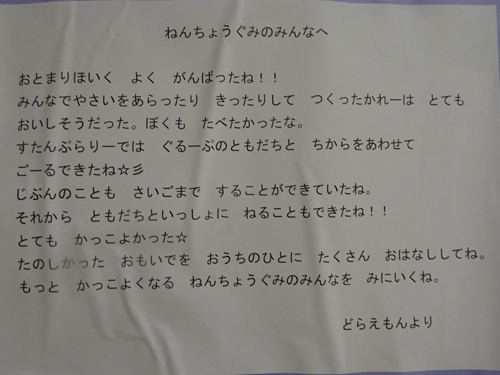 ねんちょうぐみのみんなへ
おとまりほいく　よく　がんばったね！！
みんなでやさいをあらったり　きったりして　つくったかれーは　とても
おいしそうだった。ぼくも　たべたかったな。
すたんぷらりーでは　ぐるーぷのともだちと　ちからをあわせて
ごーるできたね☆彡
じぶんのことも　さいごまで　することができていたね。
それから　ともだちといっしょに　ねることもできたね！！
とても　かっこよかった☆
たのしかった　おもいでを　おうちのひとに　たくさん　おはなししてね。
もっと　かっこよくなる　ねんちょうぐみのみんなを　みにいくね。
どらえもんより